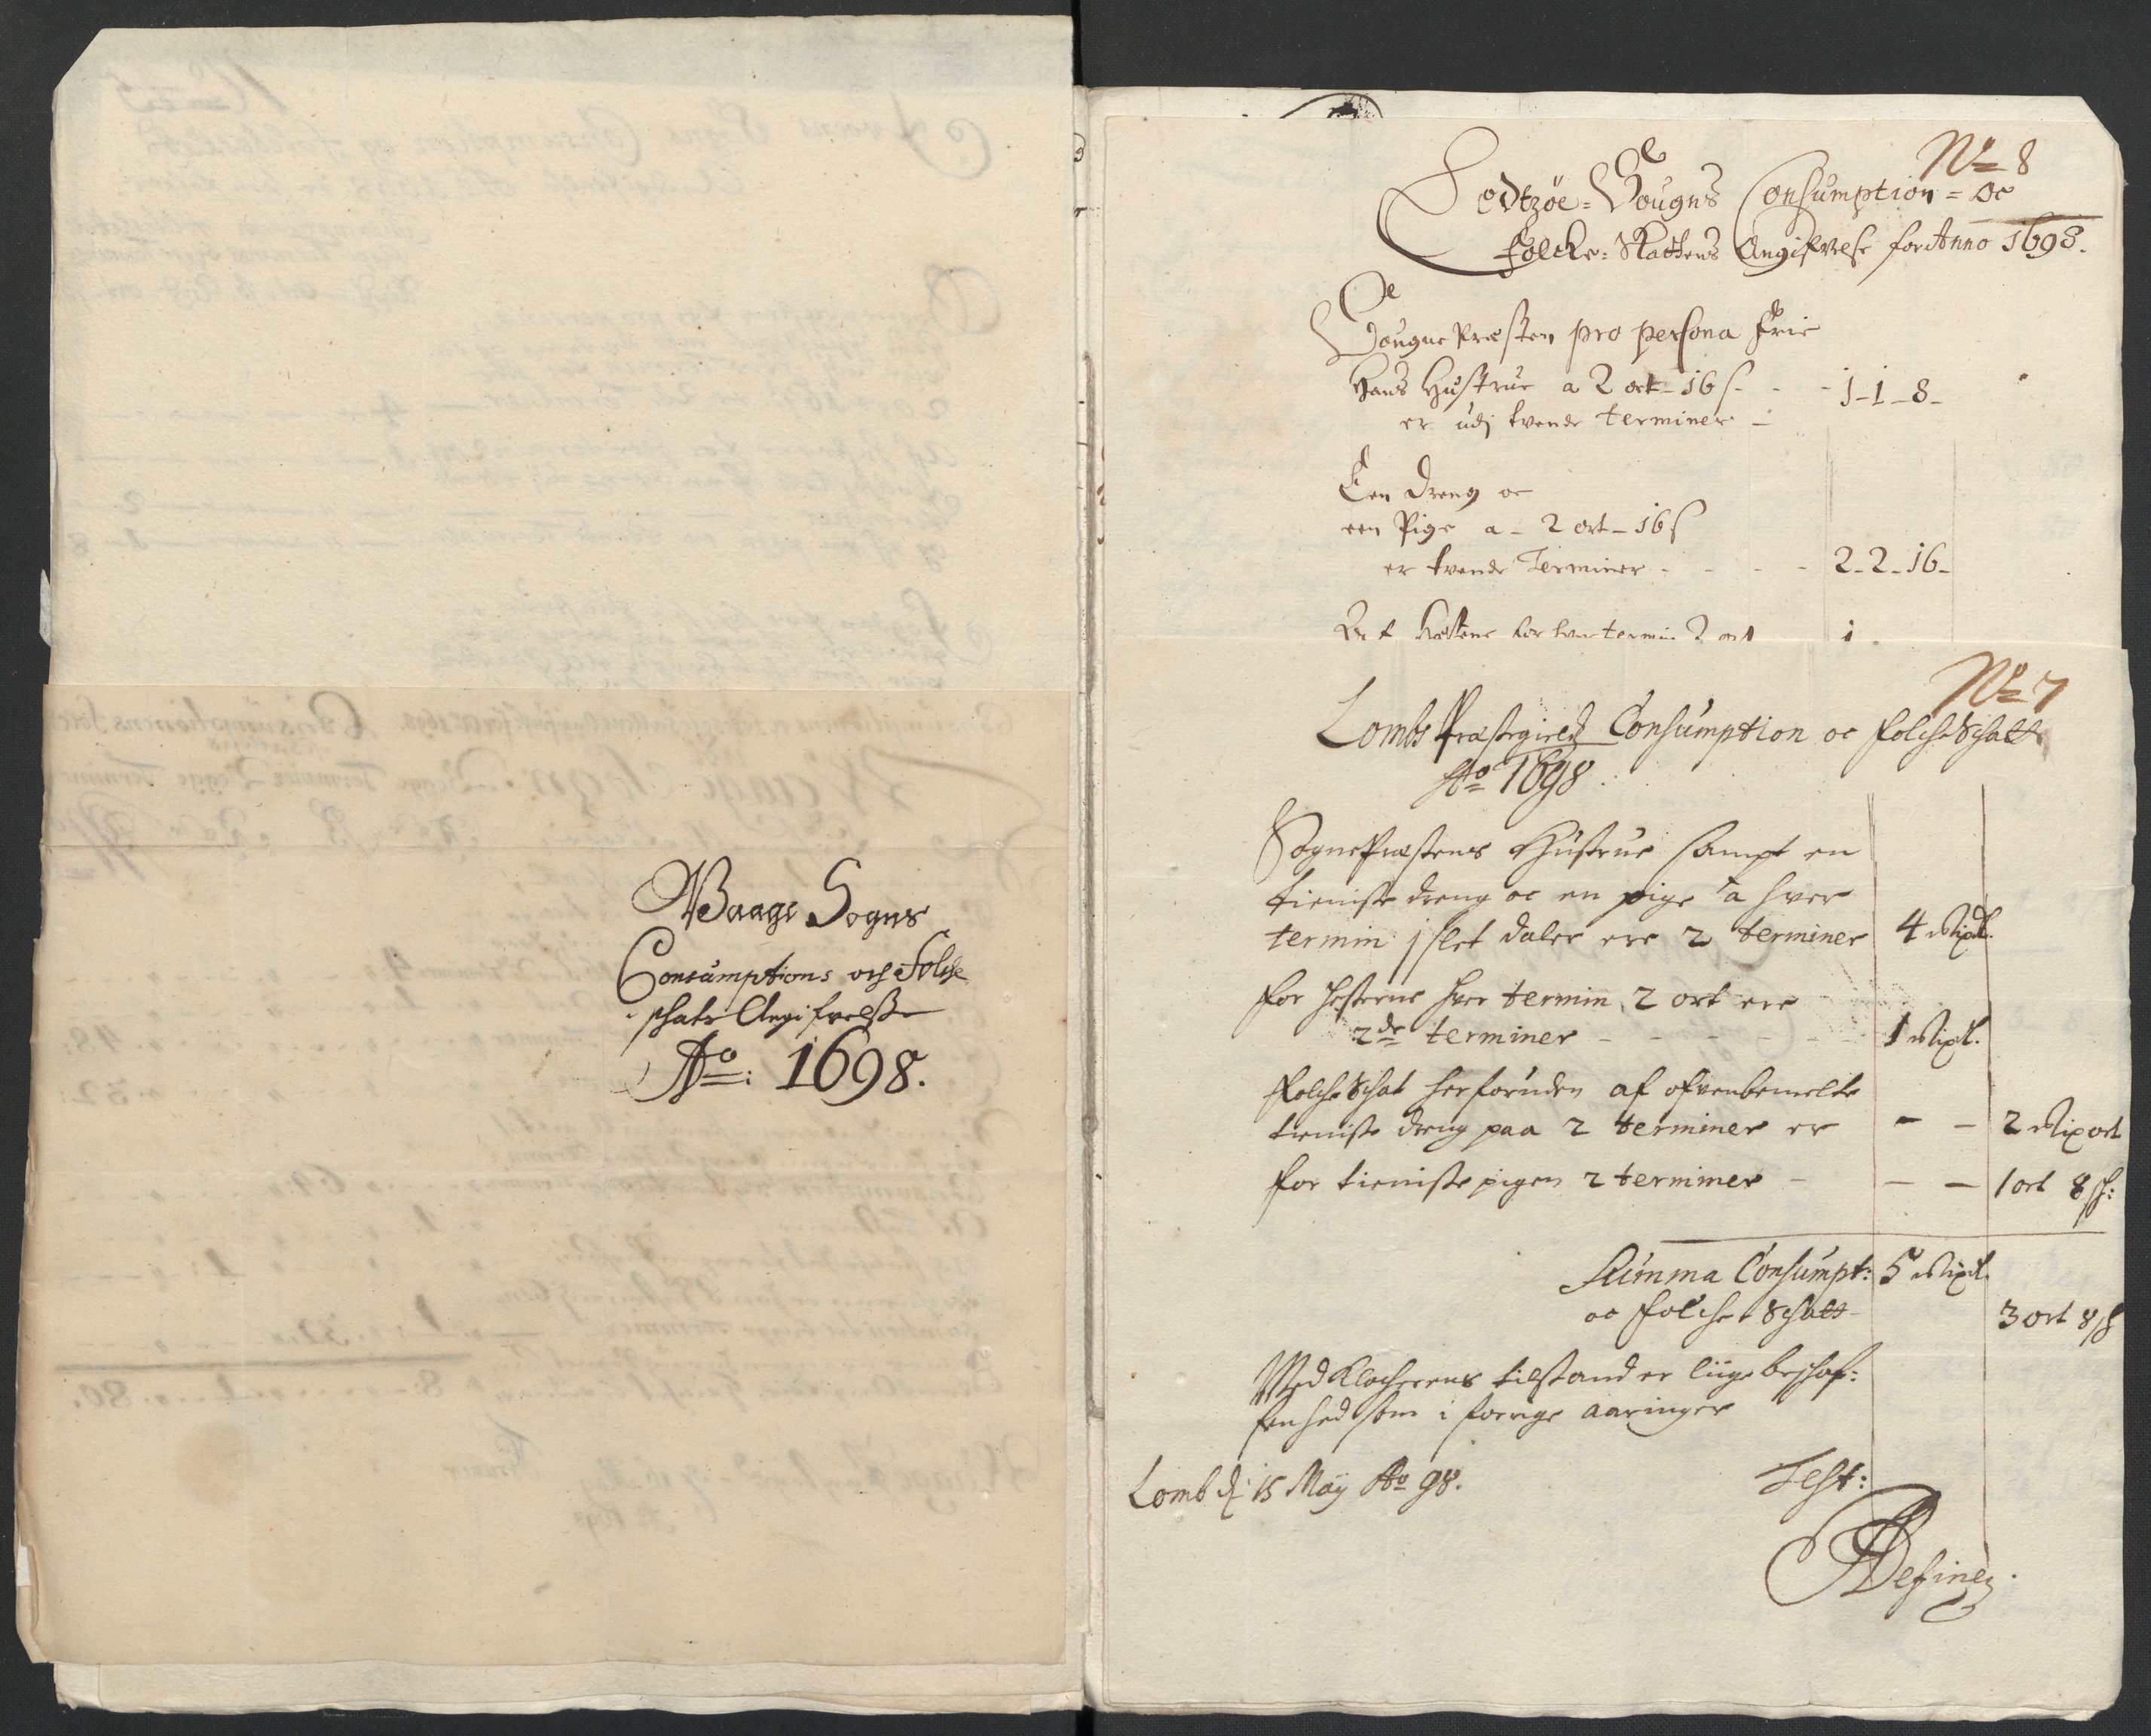 Waage Sogns
Consumptions och Folche
schatz Angifvelsse
Ao: 1698.
No 8
Sougns Consumption = oc
Folcke: Skattens Angifvelse for Anno 1698.
Sougne Præsten pro persona Frie
Hans Hustrue a 2 ort - 16 s - - - 1 - 1 - 8 -
er udj tvende terminer -
Een Dreng oc
een Pige a - 2 ort - 16 s
er tvende Terminer - - - - 2 - 2 - 16 -
hestene for hver termin 2 ort 1
No 7
Lombs Præstegields Consumption oc Folche Schatt
Ao 1698
SognePræstens Hustrue sampt en
tieniste dreng oc en pige a hver
termin 1 slet daler ere 2 terminer 4 Rixd.
for hesterne hver termin 2 ort ere
2de terminer - - - - - 1 Rixd.
Folche Schat herforuden af ofvenbemelte
tieniste dreng paa 2 terminer er - - 2 Rix ort
for tieniste pigen 2 terminer - - - 1 ort 8 sh:
Summa Consumpt: 5 Rixd.
oc Folche Schatt 3 ort 8 sh
Med Klocherens tilstand er liige beschaf:
fenhed som i forrige aaringer
Lomb d: 15 Maij Ao 98.
Test: